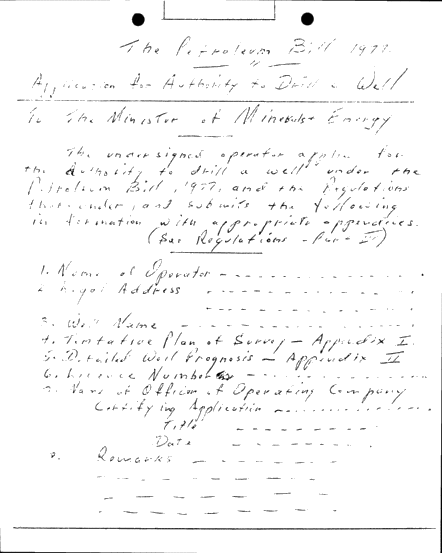 The Petroleum Bill 1977
Application for Authority to Drill a Well
To The Minister of Minerals & Energy
The undersigned operator applies for
the authority to drill a well under the
Petroleum Bill, 1977, and the Regulations
thereunder, and submits the following
information with appropriate appendices.
(See Regulations - Part IV)
1. Name of Operator
2. Legal Address
3. Well Name
4. Tentative Plan of Survey - Appendix I.
5. Detailed Well Prognosis - Appendix II
6. Licence Number
7. Name of Officer of Operating Company
Certifying Application
Title
Date
8. Remarks